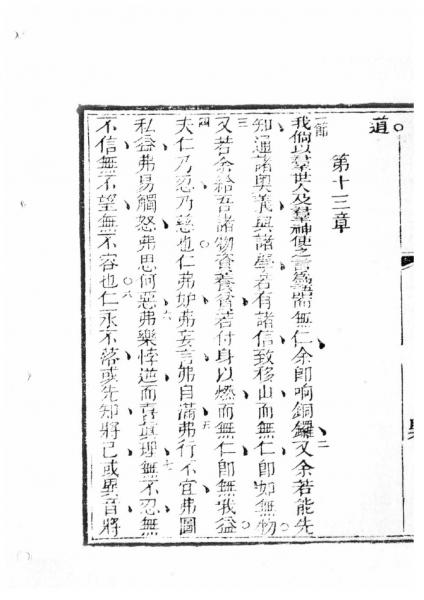 道
第十三章
一節我倘以羣世人及羣神使之言為語而無仁余即响銅鑼二又余若能先
知通諸奧義與諸學若有諸信致移山而無仁即如無物
三又若余給吾諸物資養貧若付身以燃而無仁即無我益
四夫仁乃忍乃慈也仁弗妒弗妄言弗自滿五弗行不宜弗圖
私益弗易觸怒弗思何惡六弗樂悖逆而喜真理七無不忍無
不信無不望無不容也八仁永不落或先知將已或異音將